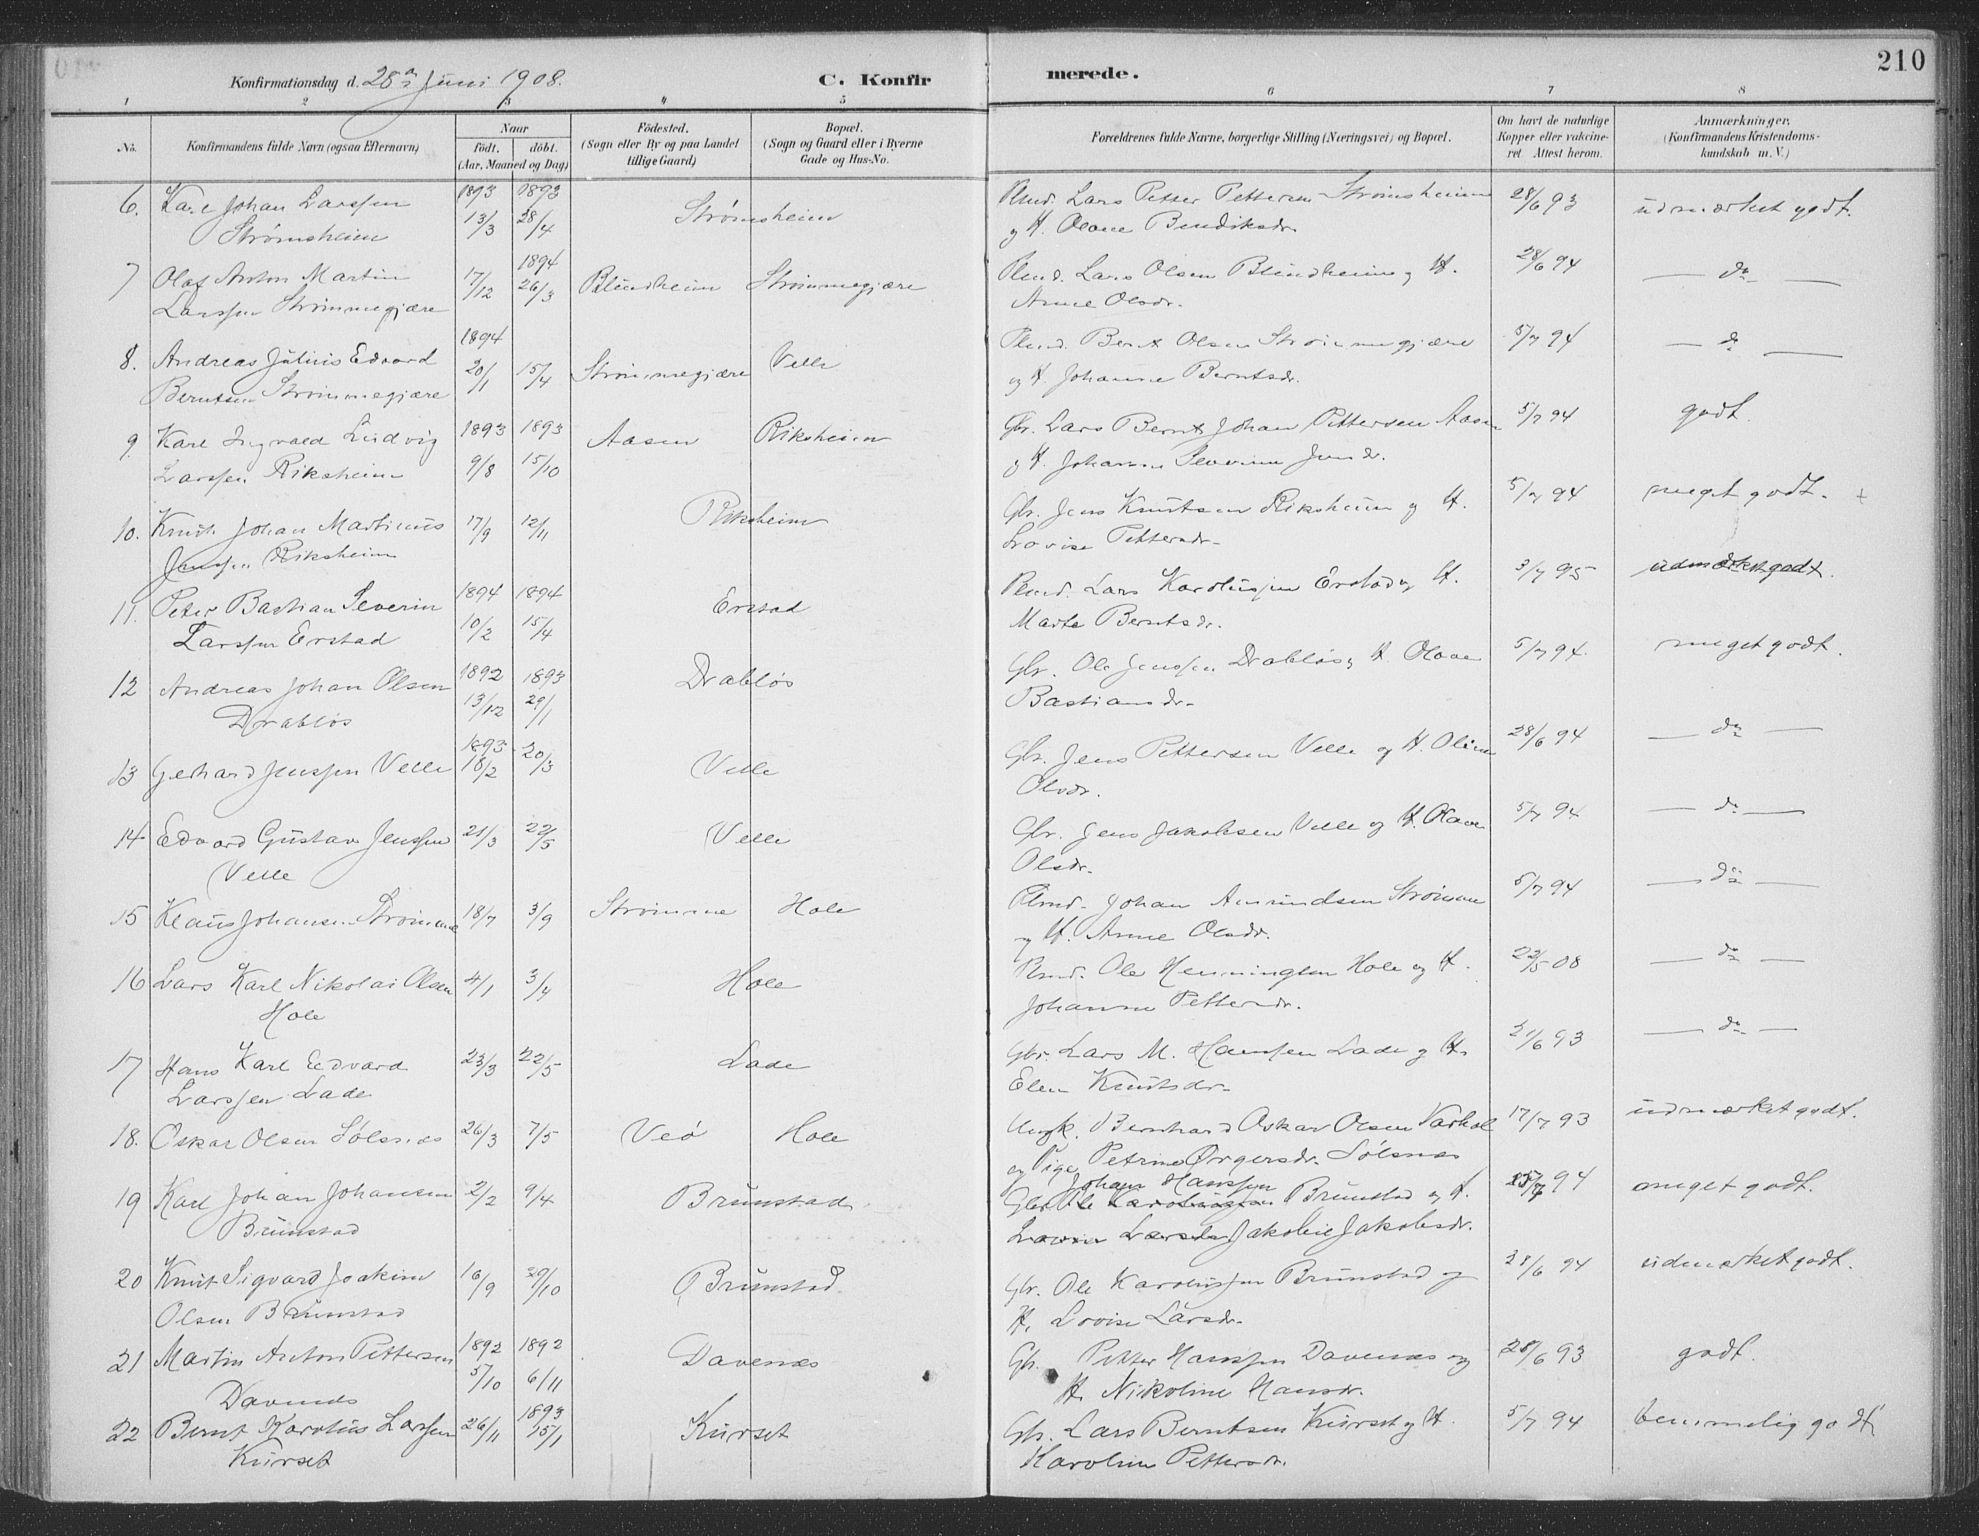 210
Konfirmationsdag d. 28de Juni 1908.
C. Konfirmerede.
1 2 3 4 5 6 7 8
No.
Konfirmandens fulde Navn (ogsaa Efternavn)
Naar
født. døbt.
(Aar, Maaned og Dag)
Fødested.
(Sogn eller By og paa Landet
tillige Gaard)
Bopæl.
(Sogn og Gaard eller i Byerne
Gade og Hus-No.
Forældrenes fulde Navne, borgerlige Stilling (Næringsvei) og Bopæl.
Om havt de naturlige
Kopper eller vakcine-
ret. Attest herom.
Anmærkninger.
(Konfirmandens Kristendoms-
kundskab m. V.)
6. Karl Johan Larssen 1893 1893 Strømsheim Lars Petter Pettersen Strømsheim 28/6 93 udmærket godt.
Strømsheim 13/3 28/4 og H. Olave Bendiksdr.
7 Olaf Anton Martin 17/12 1894 26/3 Blindheim Strømmegjære Lars Olsen Blindheim og H. 28/6 94 — do —
Larssen Strømmegjære Anne Olsdr.
8. Andreas Julius Edvard 1894 20/1 15/4 Strømmegjære Velle Bernt Olsen Strømmegjære 5/7 94 — do —
Berntsen Strømmegjære og H. Johanne Berntsdr.
9 Karl Ingvald Ludvig 1893 1893 Aasen Riksheim Gbr. Lars Bernt Johan Pettersen Aasen 5/7 94 godt.
Larssen Riksheim 9/8 15/10 og H. Johanne Severine
10. Knut Johan Martinus 17/9 12/11 Riksheim Gbr. Jens Knutsen Riksheim og H. 5/7 94 meget godt. +
Jenssen Riksheim Lovise Pettersdr.
11. Peter Bastian Severin 1894 1894 Erstad Lars Karolussen Erstad og H. 3/7 95 udmærket godt.
Larssen Erstad 10/2 15/4 Marte Berntsdr.
12 Andreas Johan Olsen 1892 1893 Drabløs Gbr. Ole Jenssen Drabløs og H. Olave 5/7 94. meget godt.
Drabløs 13/12 29/1 Bastiansdr.
13 Gerhard Jenssen Velle 1893 18/2 20/3 Velle Gbr. Jens Pettersen Velle og H. Oline 28/6 94 — do —
Olsdr.
14 Edvard Gustav Jenssen 21/3 22/5 Velle Gbr. Jens Jakobsen Velle og H. Olave 5/7 94 — do —
Velle Olsdr.
15 Klaus Johansen Strømme 18/7 3/9 Strømme Hole Johan Amundsen Strømme 5/7 94 — do —
og H. Anne Olsdr.
16 Lars Karl Nikolai Olsen 4/1 3/4 Hole Ole Henningsen Hole og H. 22/5 08 — do —
Hole Johanne Pettersdr.
17 Hans Karl Edvard 23/3 22/5 Lade Gbr. Lars M. Hanssen Lade og H. 21/6 93 — do —
Larssen Lade Elen Knutsdr.
18. Oskar Olsen Sølsnæs 26/3 7/5 Veø Hole Ungk. Bernhard Oskar Olsen Varhol 17/7 93 udmærket godt.
og Pige Petrine Ørgersdr. Sølsnæs
19 Karl Johan Johansen 2/2 9/4 Brunstad Johan Hanssen
Gbr. Ole Karolussen Brunstad og H. 5/7 94 meget godt.
Brunstad Lovise Larsdr Jakobie Jakobsdr.
20 Knut Sigvard Joakim 16/9 29/10 Brunstad Gbr. Ole Karolussen Brunstad og 28/6 94 udmærket godt.
Olsen Brunstad H. Lovise Larsdr.
21 Martin Anton Pettersen 1892 1892 Davenæs Gbr. Petter Hanssen Davenæs og 28/6 93 godt.
Davenæs 5/10 6/11 H. Nikoline Hansdr.
22 Bernt Karolus Larssen 26/11 1893 15/1 Kurset Gbr. Lars Berntsen Kurset og H. 5/7 94 temmelig godt
Kurset Karoline Pettersdr.